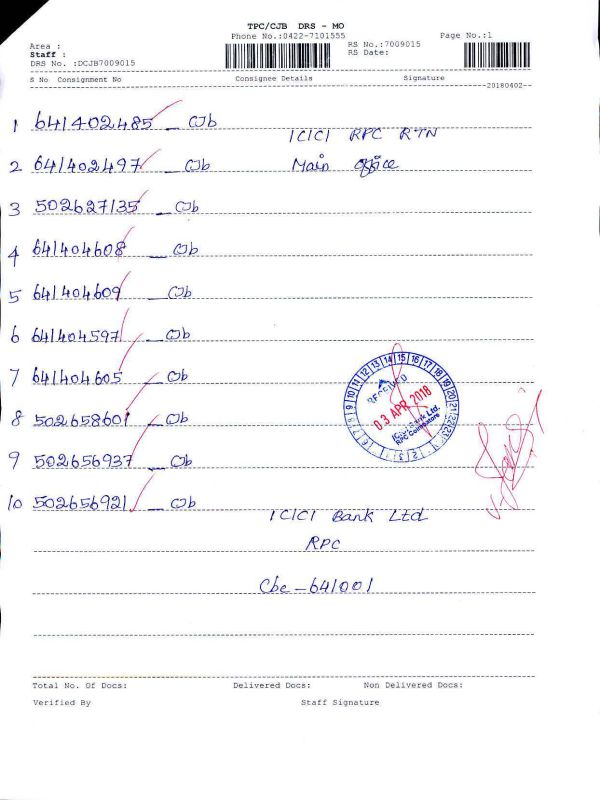 TPC/CJB DRS - MO
Phone No.:0422-7101555
Page No.:1
Area :
RS No.:7009015
Staff :
RS Date:
DRS No. :DCJB7009015
S No Consignment No Consignee Details Signature
20180402
1 641402485 _ CJb
ICICI RPC RTN
2 641402497 _ CJb Main office
3 502627135 _ CJb
4 641404608 _ CJb
5 641404609 _ CJb
6 641404597 _ CJb
7 641404605 _ CJb
8 502658601 _ CJb
9 502656937 _ CJb
10 502656921 _ CJb
RECEIVED
03 APR 2018
ICICI Bank Ltd.
RPC Coimbatore
ICICI Bank Ltd
RPC
Cbe - 641001
Total No. Of Docs: Delivered Docs: Non Delivered Docs:
Verified By Staff Signature